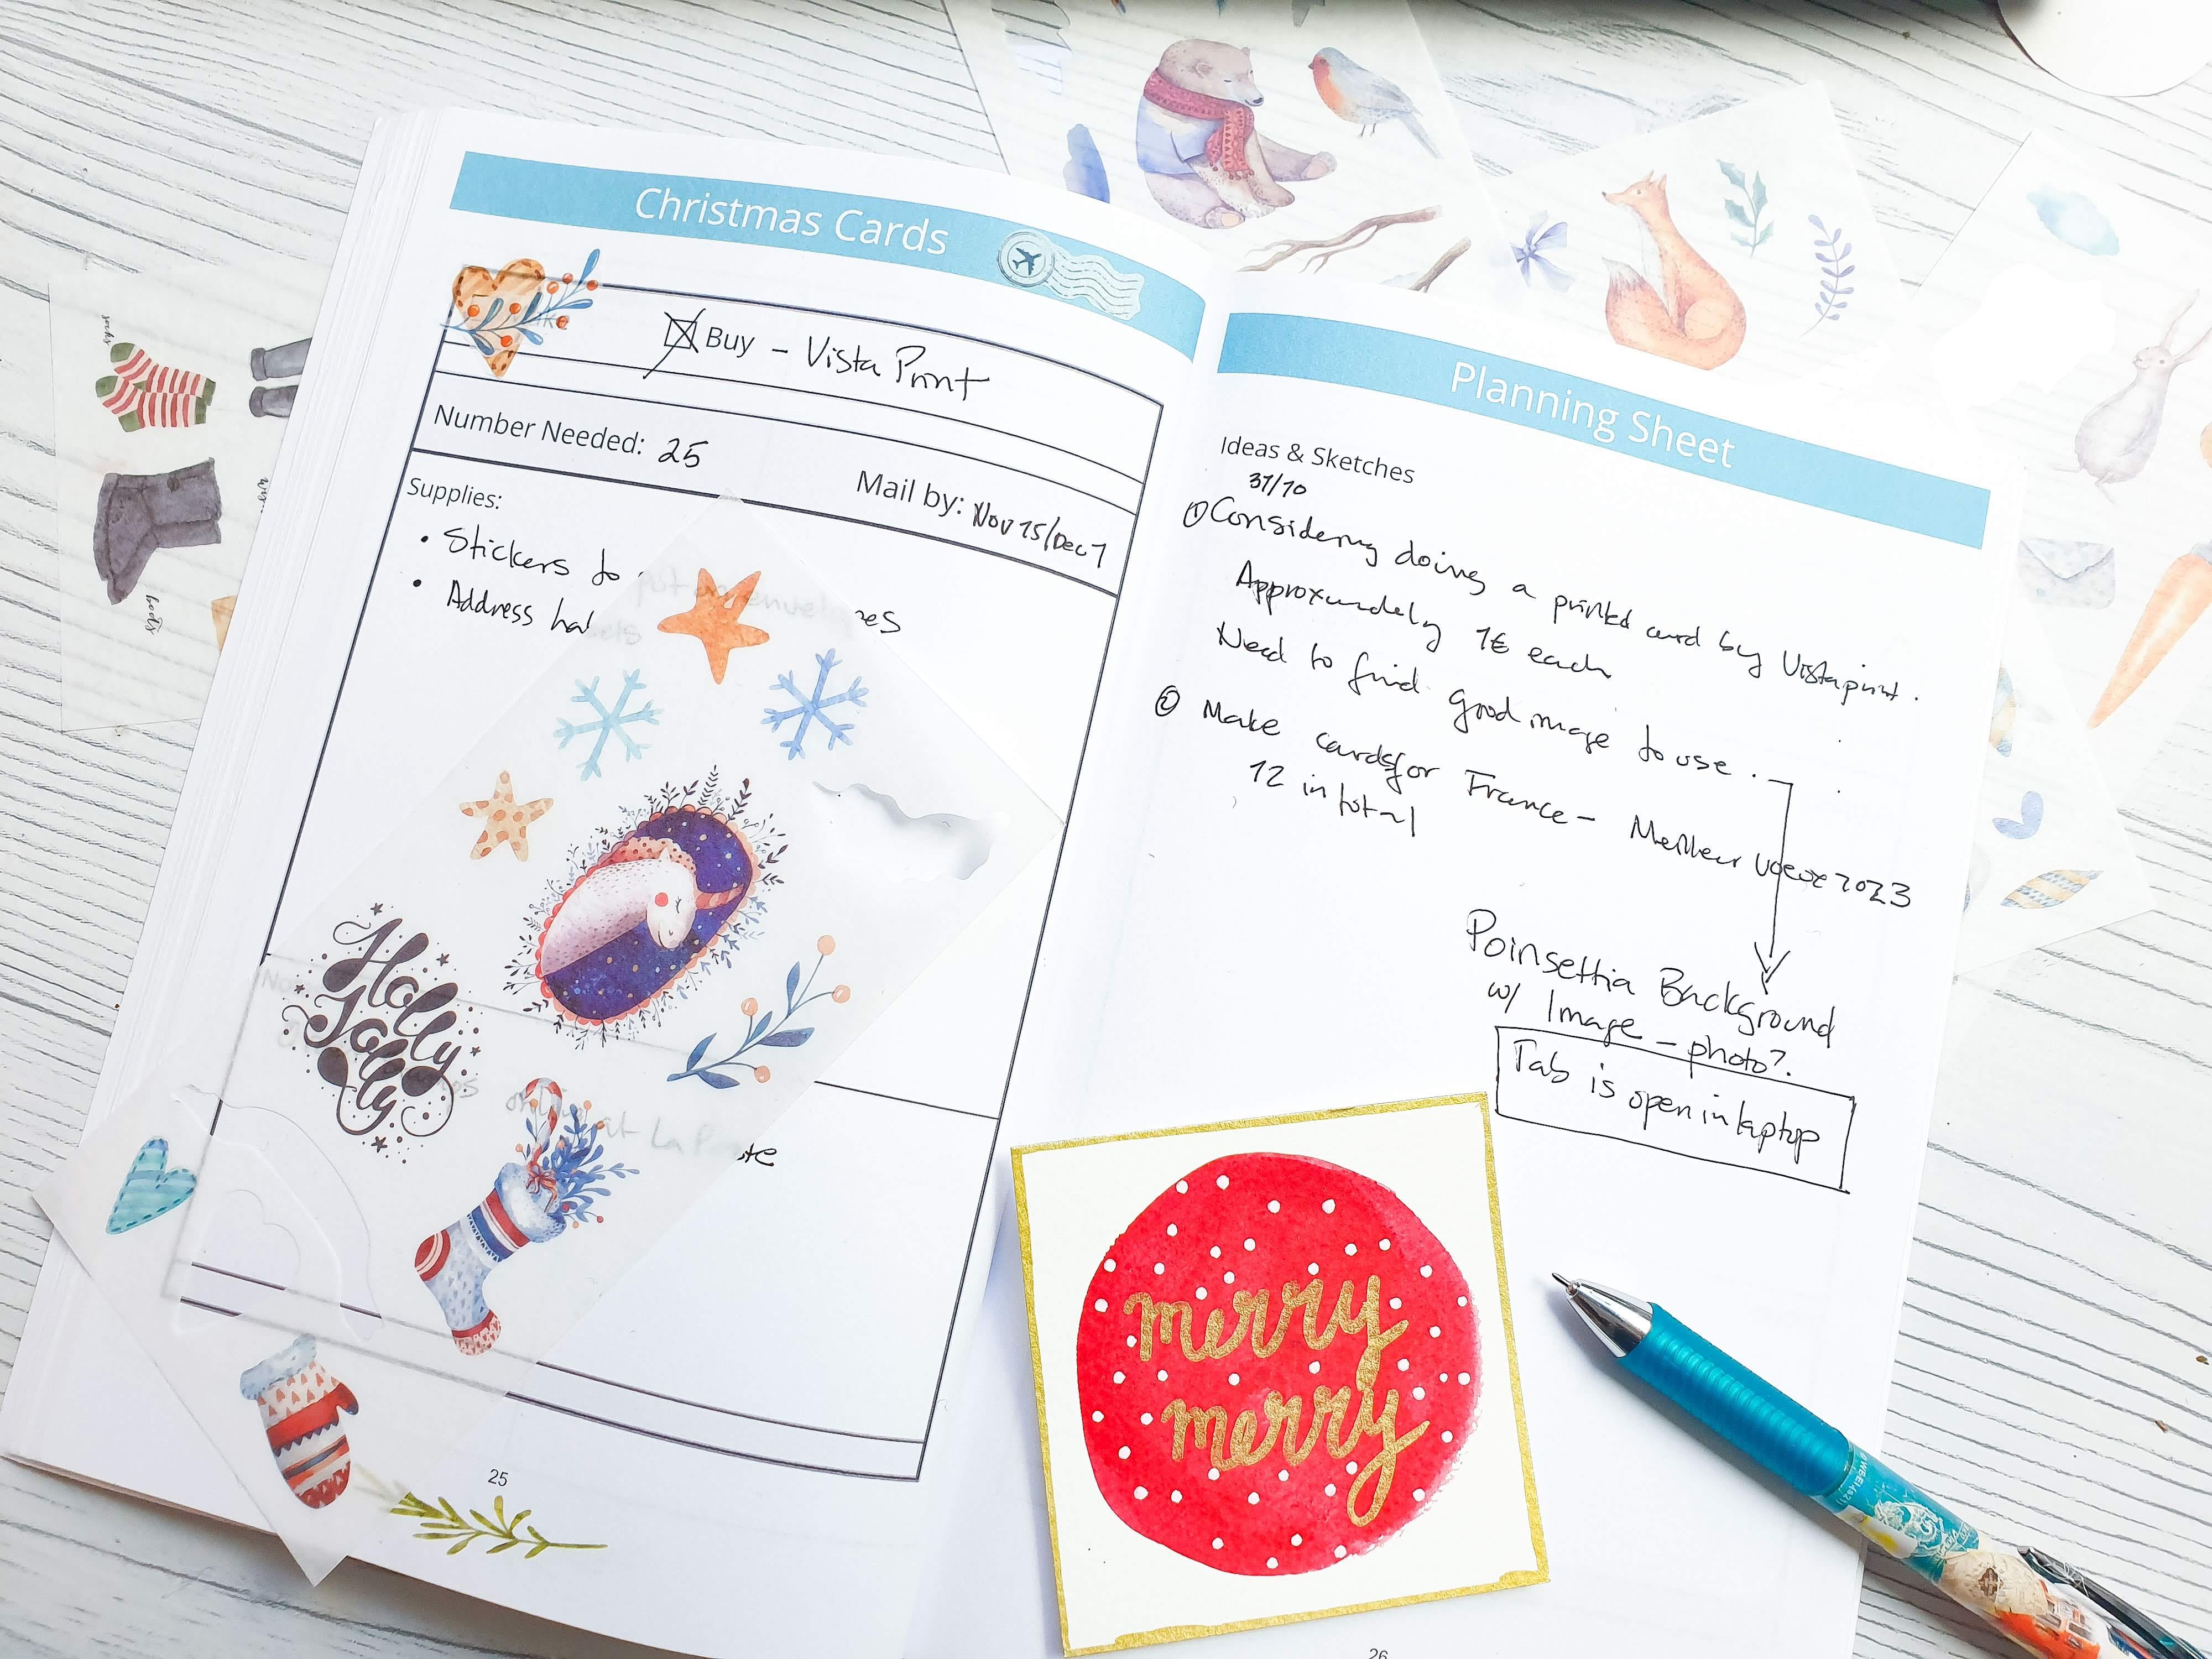 Christmas Cards
Buy - Vista Print
Number Needed: 25
Mail by: Nov 15/Dec 1
Supplies:
• Stickers to put on envelopes
• Address labels
Holly
Jolly
at La Poste
25
Planning Sheet
Ideas & Sketches
31/10
① Considering doing a printed card by Vistaprint.
Approximately 1€ each
Need to find good image to use.
② Make cards for France - Meilleur Voeux 2023
12 in total
Poinsettia Background
w/ Image - photo?
Tab is open in laptop
merry
merry
26
socks
boots